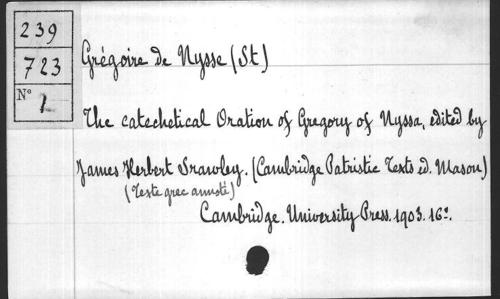 239
723
N° 1
Grégoire de Nysse (St.)
The catechetical Oration of Gregory of Nyssa, edited by
James Herbert Srawley. (Cambridge Patristic Texts ed. Mason)
(Texte grec annoté)
Cambridge. University Press. 1903. 16°.